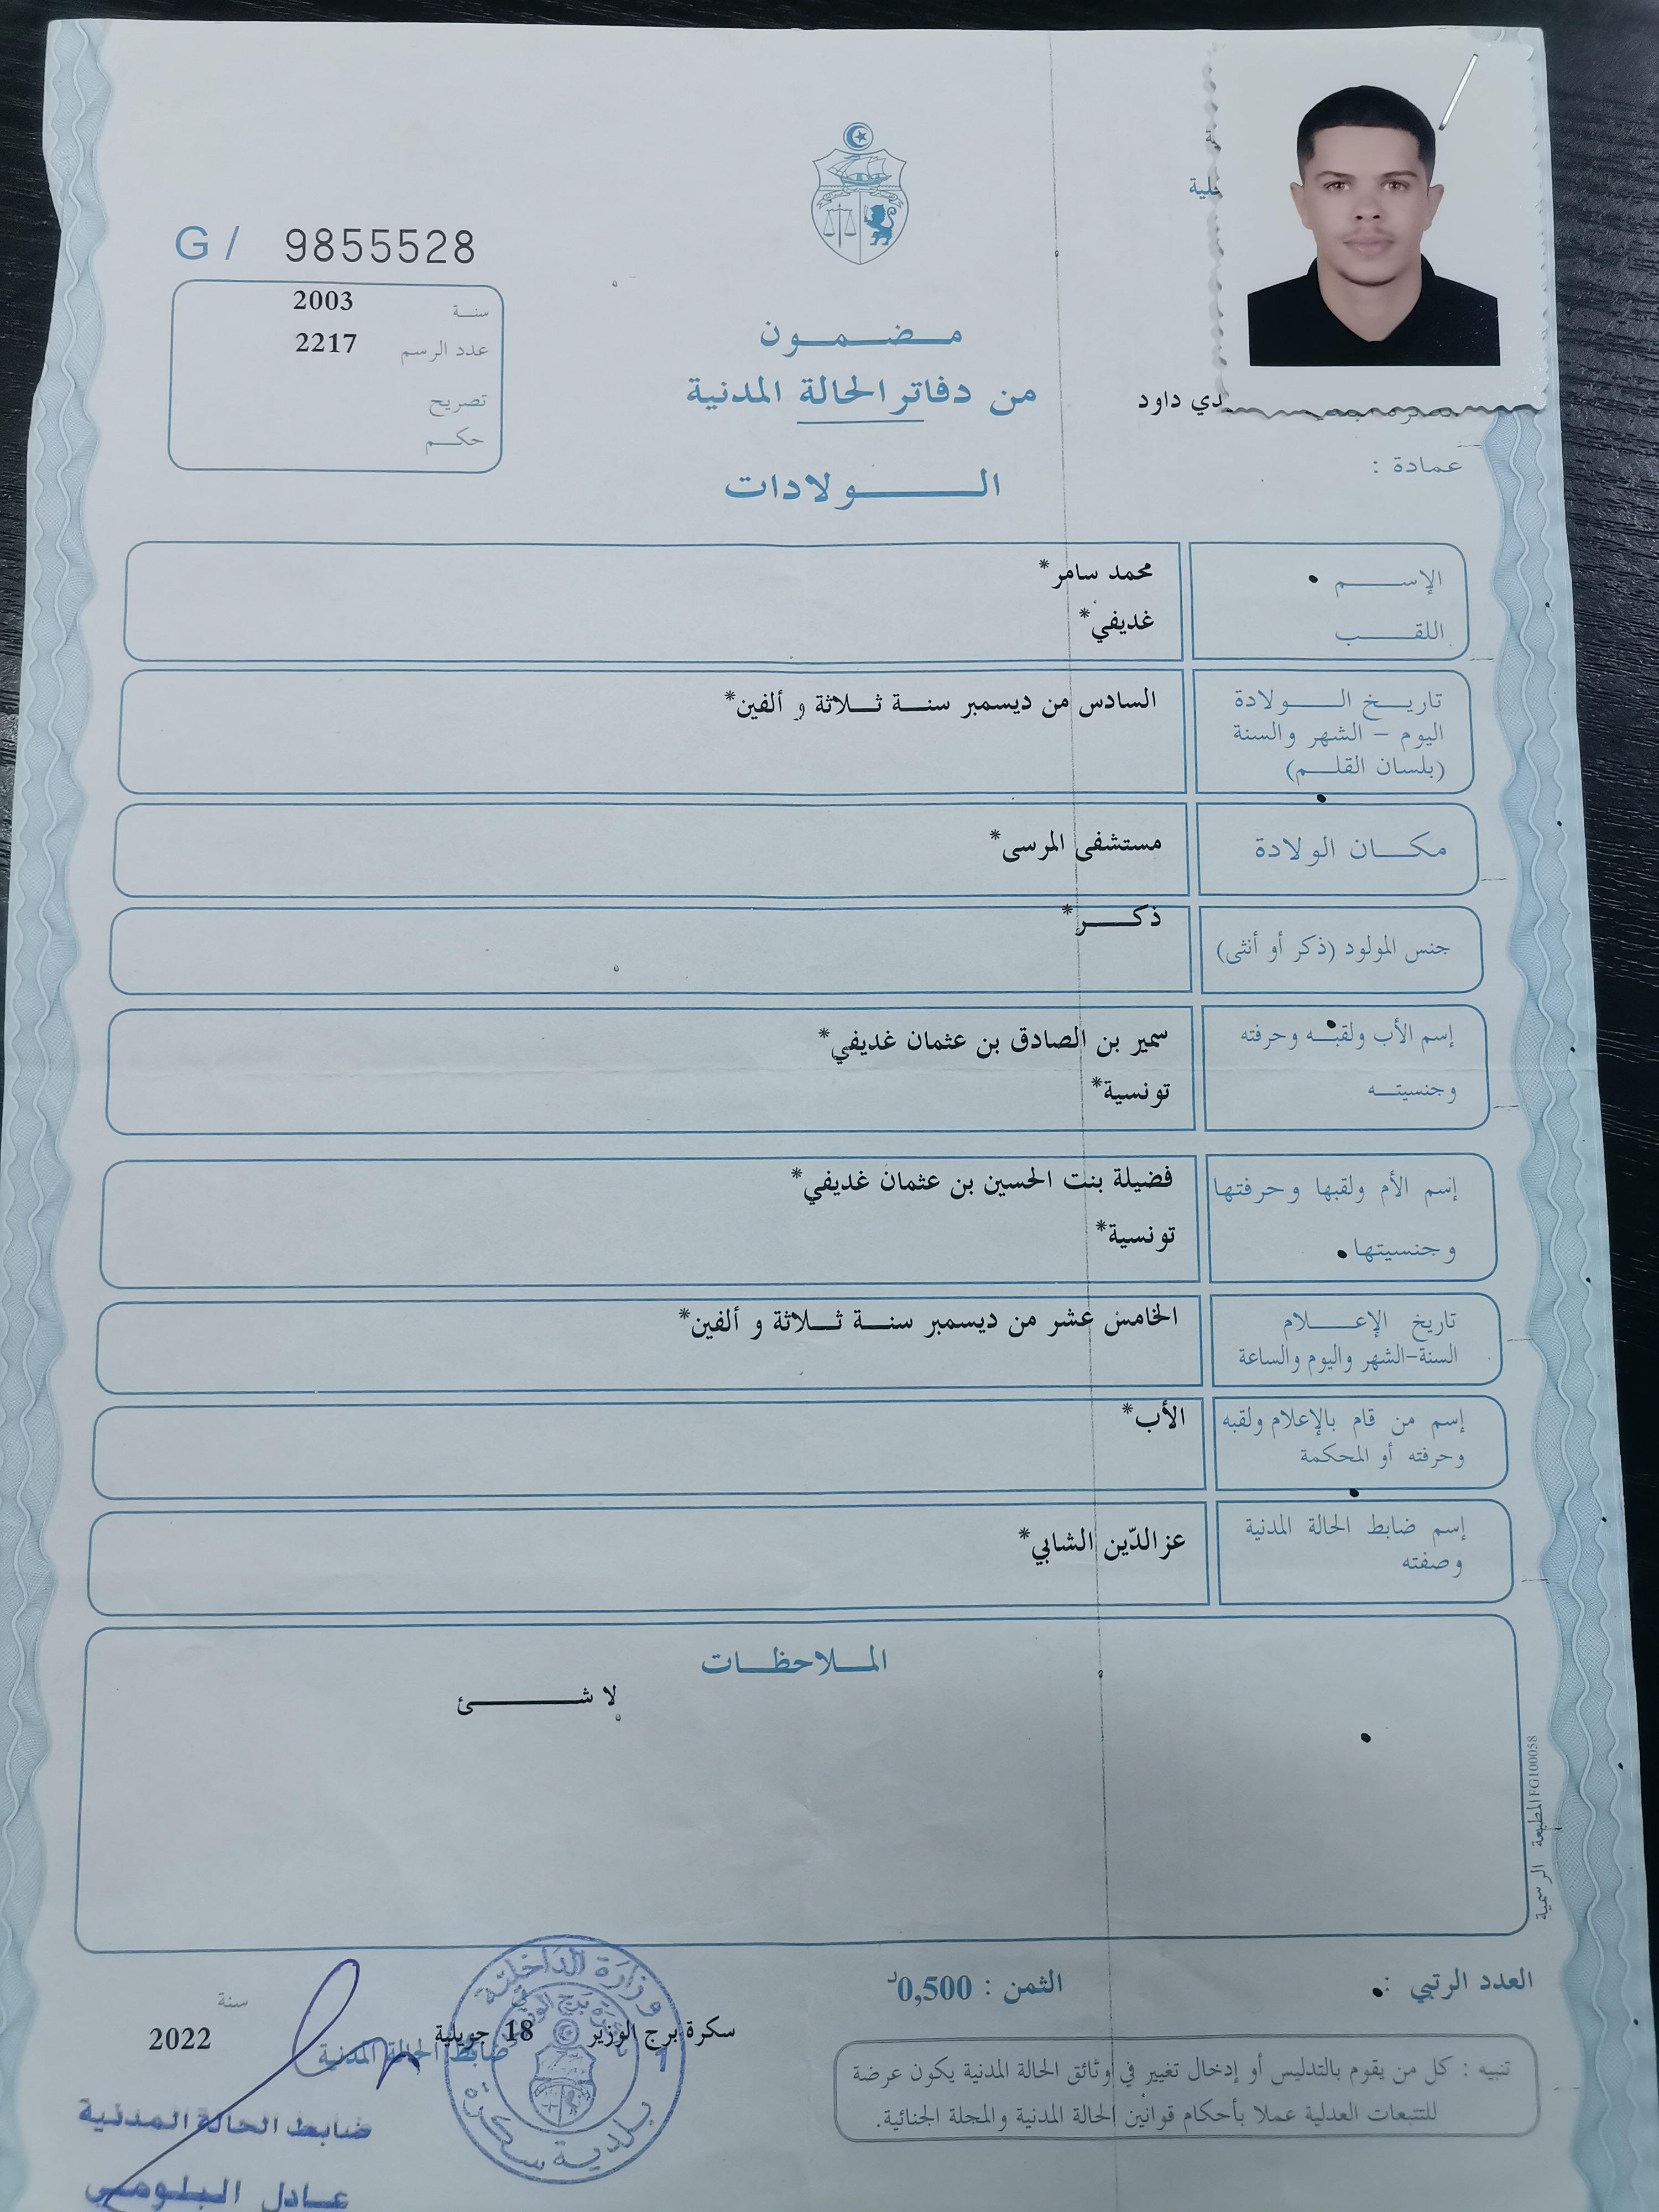 G / 9855528
سنة 2003
عدد الرسم 2217
تصريح
حكم
مضمون
من دفاتر الحالة المدنية
الولادات
دي داود
عمادة :
الإسم محمد سامر*
اللقب غديفي*
تاريخ الولادة السادس من ديسمبر سنة ثلاثة و ألفين*
اليوم - الشهر والسنة
(بلسان القلم)
مكان الولادة مستشفى المرسى*
جنس المولود (ذكر أو أنثى) ذكر*
إسم الأب ولقبه وحرفته سمير بن الصادق بن عثمان غديفي*
وجنسيته تونسية*
إسم الأم ولقبها وحرفتها فضيلة بنت الحسين بن عثمان غديفي*
وجنسيتها تونسية*
تاريخ الإعلام الخامس عشر من ديسمبر سنة ثلاثة و ألفين*
السنة-الشهر واليوم والساعة
إسم من قام بالإعلام ولقبه الأب*
وحرفته أو المحكمة
إسم ضابط الحالة المدنية عز الدّين الشابي*
وصفته
الملاحظات
لا شئ
المطبعة الرسمية FG100058
العدد الرتبي :
الثمن : 0,500د
سكرة برج الوزير 18 جويلية سنة 2022
ضابط الحالة المدنية
وزارة الداخلية
بلدية سكرة
1
ضابط الحالة المدنية
عادل البلومي
تنبيه : كل من يقوم بالتدليس أو إدخال تغيير في وثائق الحالة المدنية يكون عرضة
للتتبعات العدلية عملا بأحكام قوانين الحالة المدنية والمجلة الجنائية.